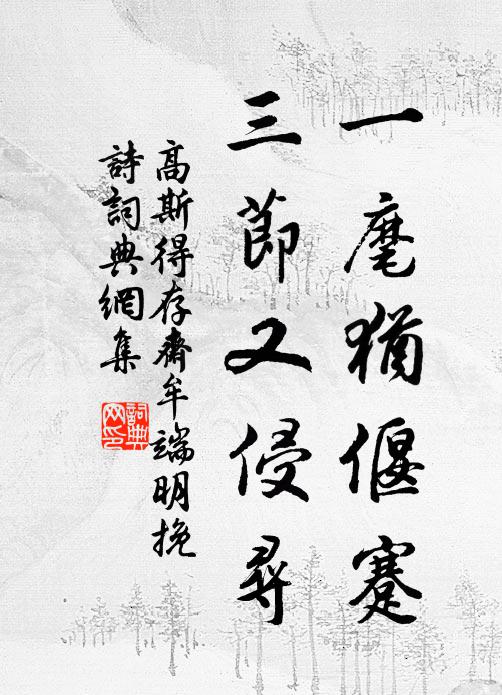 一麾猶偃蹇
三節又侵尋
高斯得存齋牟端明挽
詩詞典網集
詞典網印